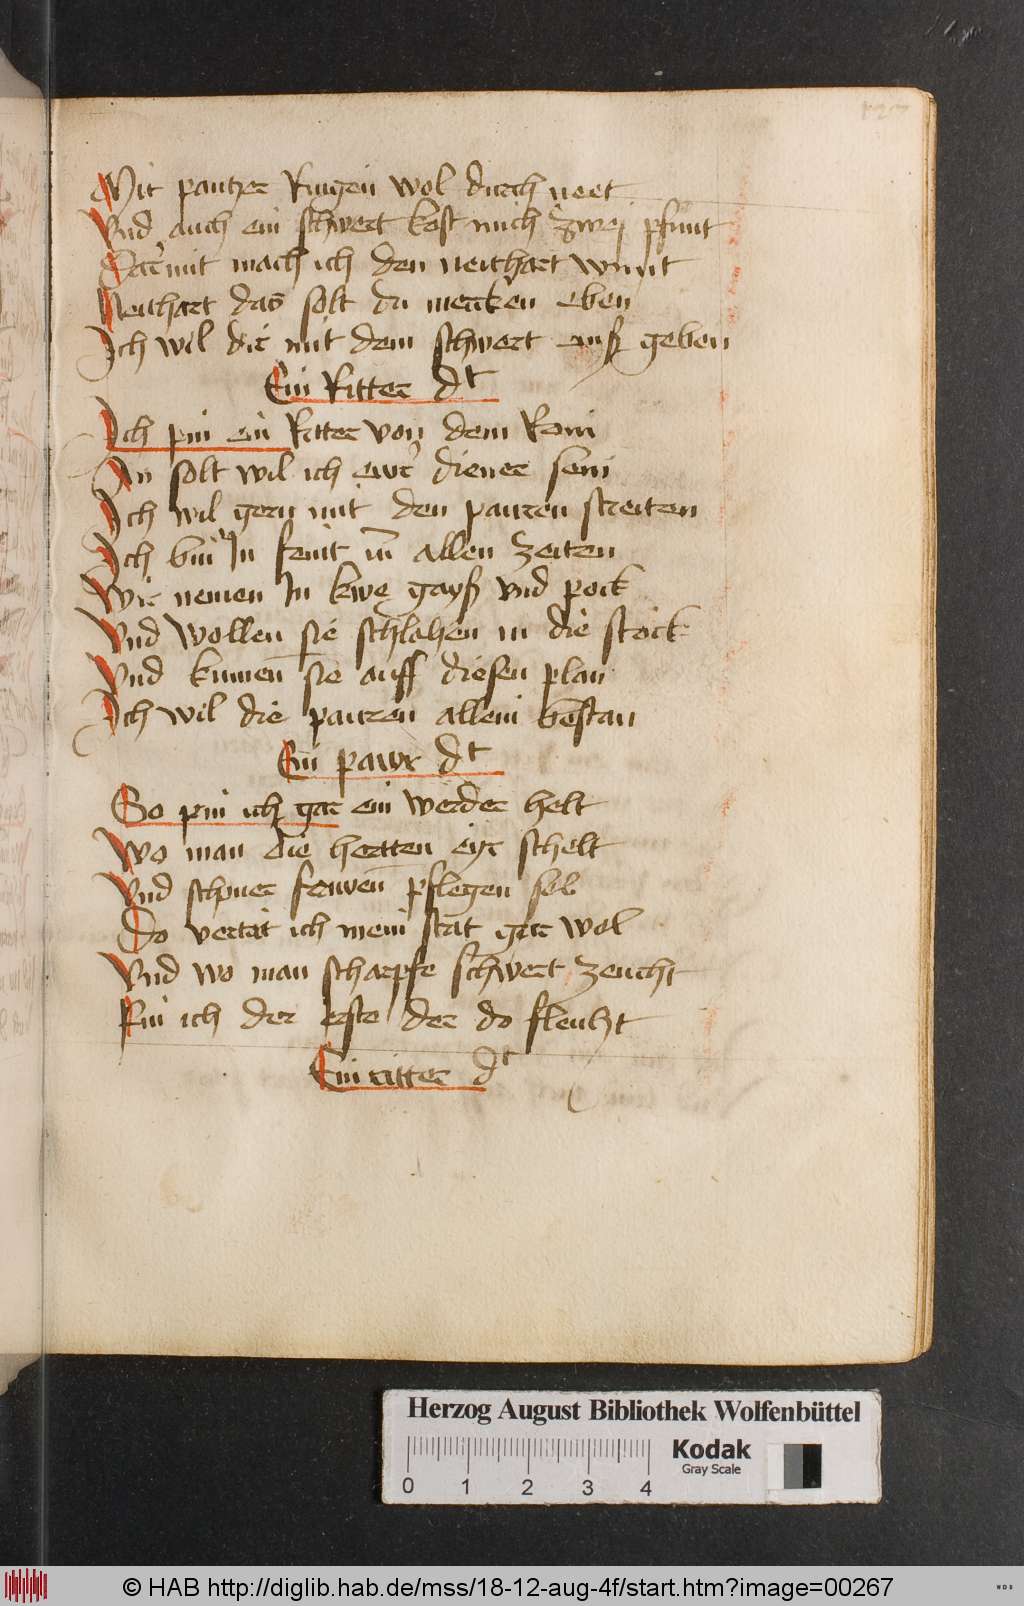 Mit pantzer Ringen wol durch neet
Vnd auch ein schwert kost mich zwej pfunt
Dar mit mach ich den neithart wunt
Neithart das solt du mercken eben
Ich wil dir mit dem schwert eins geben
Ein Ritter dt
Ich pin ein Ritter von dem Rein
An solt wil ich ewr diener sein
Ich wil gern mit den pauren streiten
Ich bin In feint in allen zeiten
Wir nemen In kwe gayß vnd pock
Vnd wollen sie schlahen in die stock
Vnd kumen sie auff diesen plan
Ich wil die pauren allein bestan
Ein pawr dt
So pin ich gar ein werder helt
Wo man die hertten eyr schelt
Vnd schoner frawen pflegen sol
Do vertrit ich mein stat gar wol
Vnd wo man scharpfe schwert zeucht
Pin ich der erste der do fleuht
Ein ritter dt
Herzog August Bibliothek Wolfenbüttel
Kodak
Gray Scale
0 1 2 3 4
© HAB http://diglib.hab.de/mss/18-12-aug-4f/start.htm?image=00267